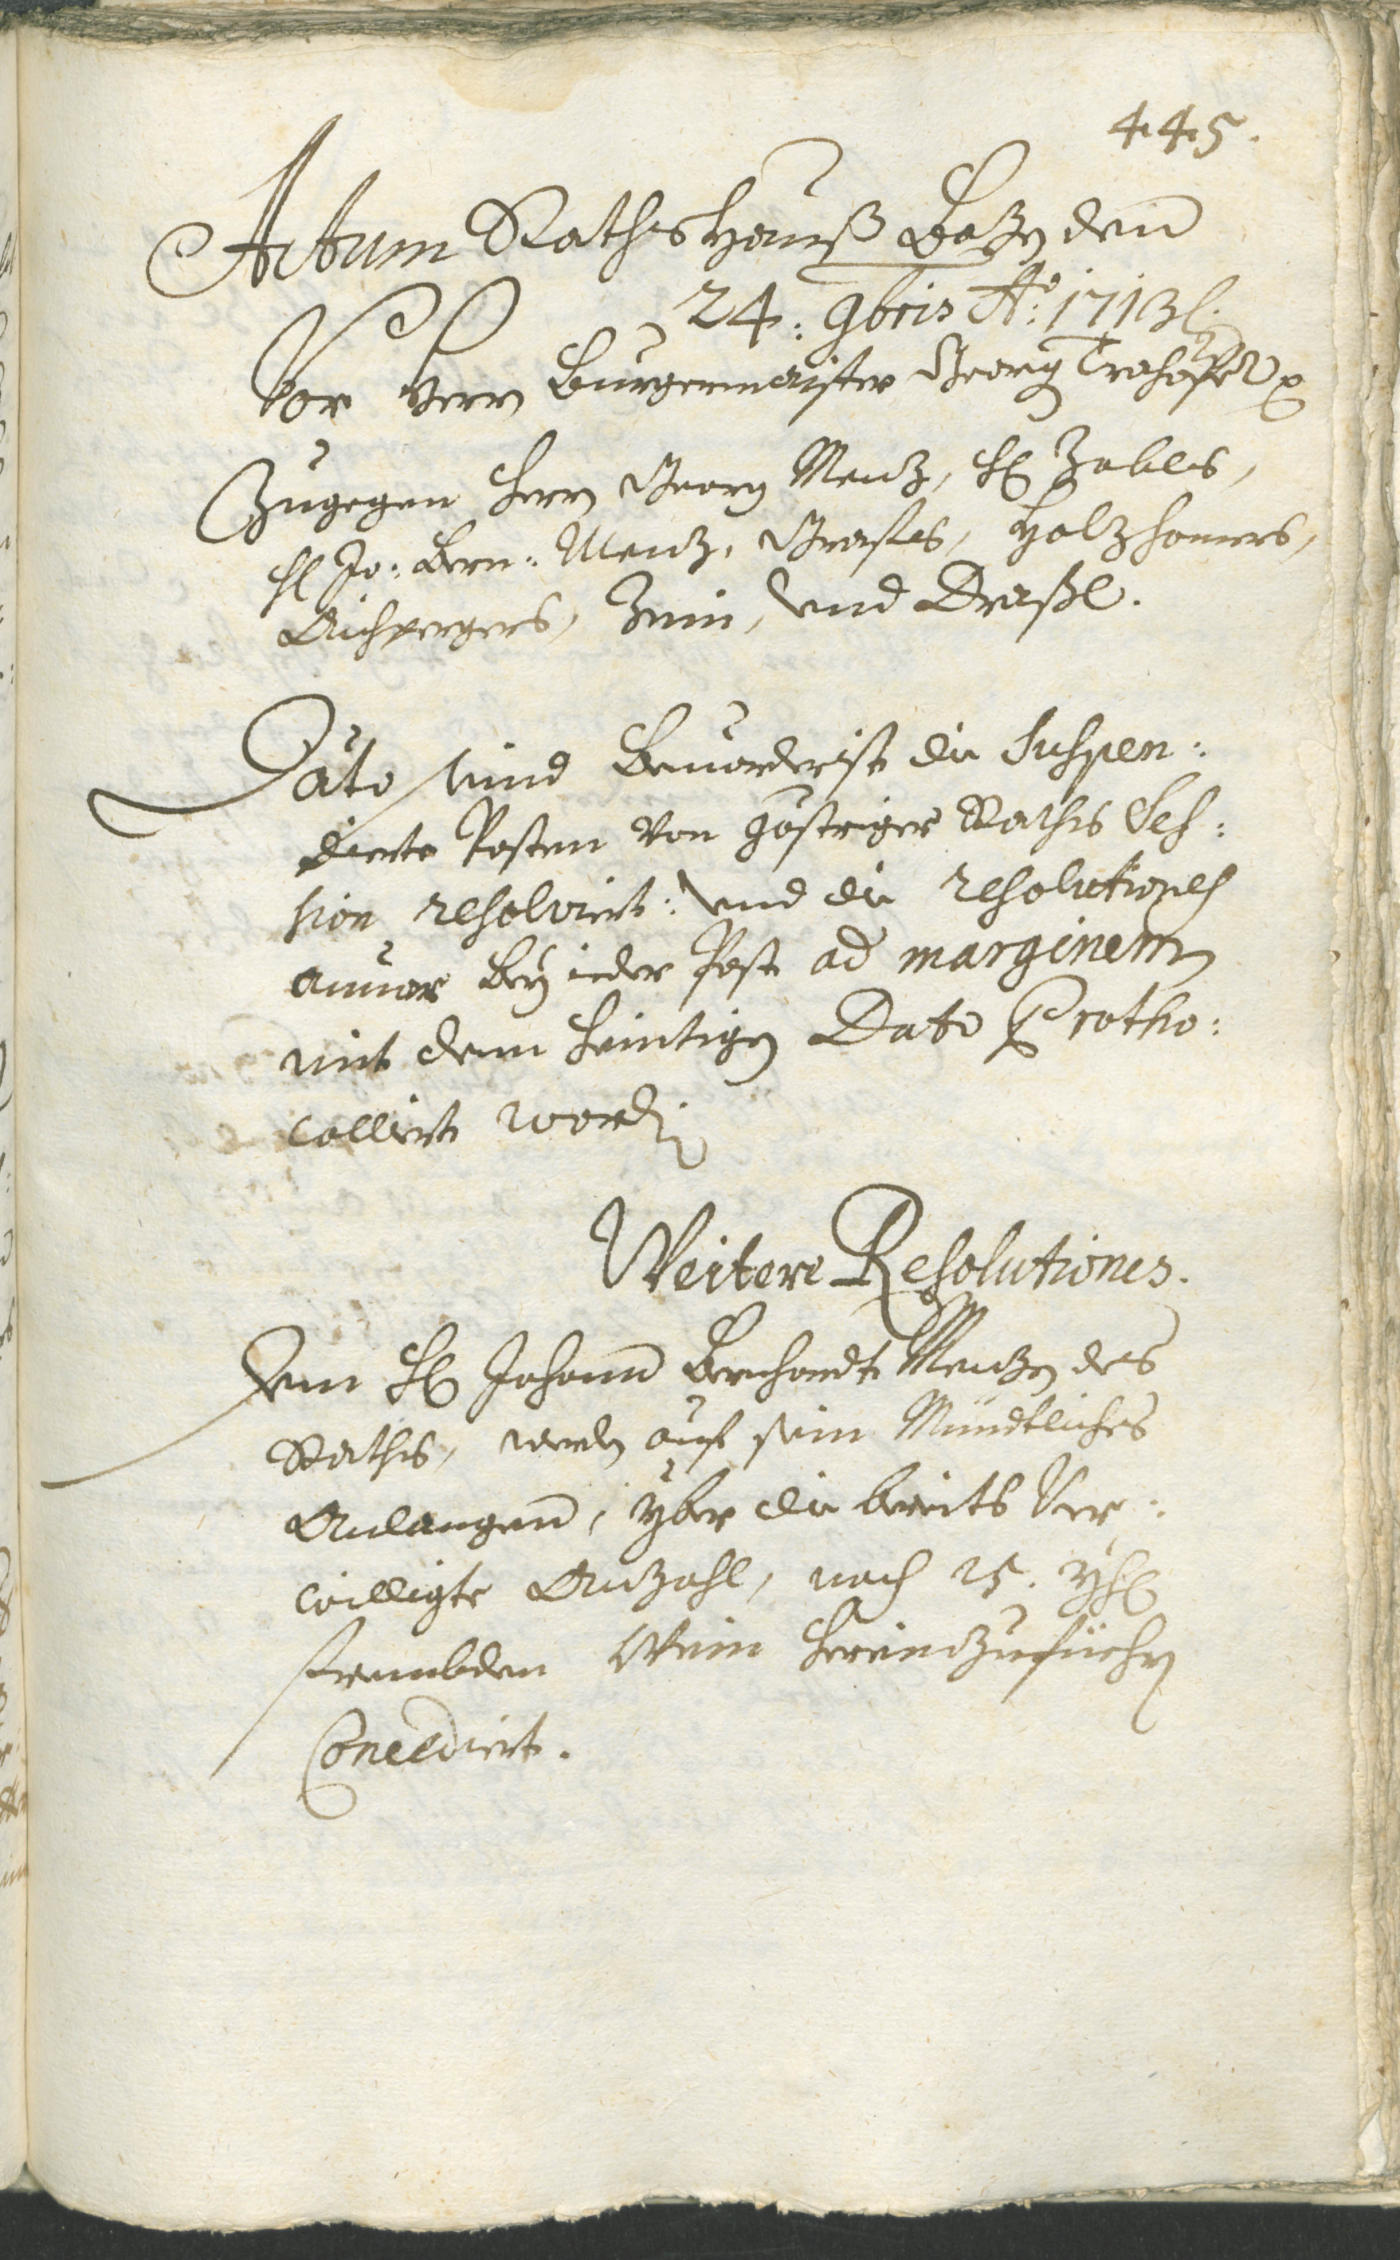 445.
Actum Raths Hauß Botzen den
24: 9bris Ao: 1713
Vor Herrn Burgermaister Georg
Zugegen Herrn Georg Mentz, H: Zallers,
H: Jo: Bern: Mentz, Holzhamers,
Aichpergers, Zeni, vnd
Dato sind Beuorderist die Suspen:
dierte Posten Von göstriger Raths Ses:
sion resolviert: vnd die resolutiones
anuor bey ieder Post ad marginem
mit dem heintigen Dato Protho:
colliert worden
Weitere Resolutiones.
Dem H: Johann Bernhardt Mentzen des
Raths, werden auf sein Mündtliches
Anlangen, yber die bereits Ver:
willigte Anzahl, noch 25. Yhrn
frembden Wein hereinzufüehrn
Concediert.